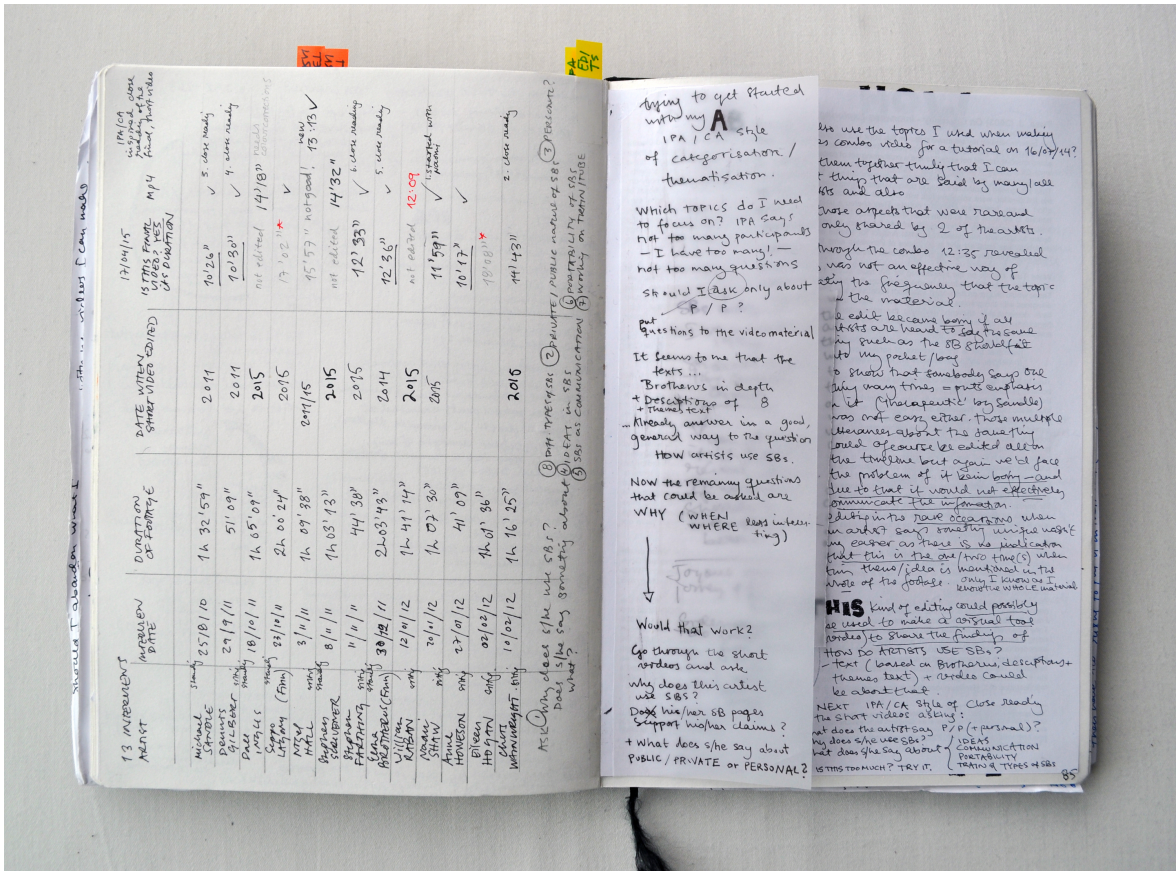 13 INTERVIEWS
17/04/15
ARTIST INTERVIEW DATE DURATION OF FOOTAGE DATE WHEN SHORT VIDEO EDITED IS THIS FINAL VIDEO? YES ITS DURATION MP4 IPA/CA inspired close reading of the final, short video
Michael SANDLE 25/8/10 1h 32'59" 2011 10'26" ✓ 3. close reading
Dennis GILBERT 29/9/11 51'09" 2011 10'30" ✓ 4. close reading
Dale INGLIS 18/10/11 1h 05'09" 2015 not edited 14'18"
(Finn) 23/10/11 2h 00'24" 2015 17'02"* ✓
Nigel HALL 3/11/11 1h 09'38" 2011/15 15'57" not good! new 13:13 ✓
Stephen 8/11/11 1h 03'13" 2015 not edited 14'32"
Stephen FARTHING 11/11/11 44'38" 2015 12'33" ✓ 6. close reading
Elina BROTHERUS (Finn) 30/12/11 2h 03'43" 2014 12'36" ✓ 5. close reading
William RABAN 12/01/12 1h 41'14" 2015 not edited 12:09
Naomi SHAW 20/01/12 1h 07'30" 2015 11'59" ✓ 1. started with Naomi
Anne HOWESON 27/01/12 41'09" 10'17" ✓
Eileen HOGAN 02/02/12 1h 01'36" 18'08"*
Chris WAINWRIGHT 10/02/12 1h 16'25" 2015 14'43" 2. close reading
ASK ① Why does s/he use SBs? ⑧ DIFF. TYPES of SBs ② PRIVATE/PUBLIC nature of SBs ③ PERSONAL?
Does s/he say something about ④ IDEAS in SBs ⑥ PORTABILITY of SBs
what? ⑤ SBs as COMMUNICATION ⑦ working on TRAIN/TUBE
should I abandon what I
PA
EDI
TS
trying to get started
with my A
IPA/CA style
of categorisation/
thematisation.
Which TOPICS do I need
to focus on? IPA says
not too many participants
– I have too many! –
not too many questions
Should I ask only about
P/P?
put
questions to the video material
It seems to me that the
texts...
Brotherus in depth
+ Descriptions of 8
+ Themes text
...Already answer in a good,
general way to the question
HOW artists use SBs.
Now the remaining questions
that could be asked are
WHY (WHEN
WHERE less interes-
ting)
Would that work?
Go through the short
videos and ask
Why does this artist
use SBs?
Do his/her SB pages
support his/her claims?
+ What does s/he say about
PUBLIC/PRIVATE or PERSONAL?
also use the topics I used when making
combo video for a tutorial on 16/07/14?
them together thinly that I can
thing that are said by many/all
and also
those aspects that were rare and
only shared by 2 of the artists.
through the combo 12:35 revealed
was not an effective way of
the frequency that the topic
the material.
edit became boring if all
artists are heard to say the same
such as the SB should fit
into my pocket/bag
to show that somebody says one
thing many times = puts emphasis
on it ('therapeutic' by Sandle)
was not easy, either. Those multiple
utterances about the same thing
could of course be edited all on
the timeline but again we'd face
the problem of it being boring – and
due to that it would not effectively
communicate the information.
Editing in the rare occasions, when
an artist says something unique wasn't
any easier as there is no indication
that this is the one/two time(s) when
this theme/idea is mentioned in the
whole of the footage. only I know as I
know the WHOLE material
THIS kind of editing could possibly
be used to make a visual tool
(video) to share the findings of
HOW DO ARTISTS USE SBs?
– text (based on Brotherus, descriptions +
themes text) + video could
be about that.
NEXT IPA/CA style of Close reading
the short videos asking:
What does the artist say P/P (+personal)?
Why does s/he use SBs?
What does s/he say about IDEAS
COMMUNICATION
PORTABILITY
TRAIN & TYPES of SBs
IS THIS TOO MUCH? TRY IT.
85